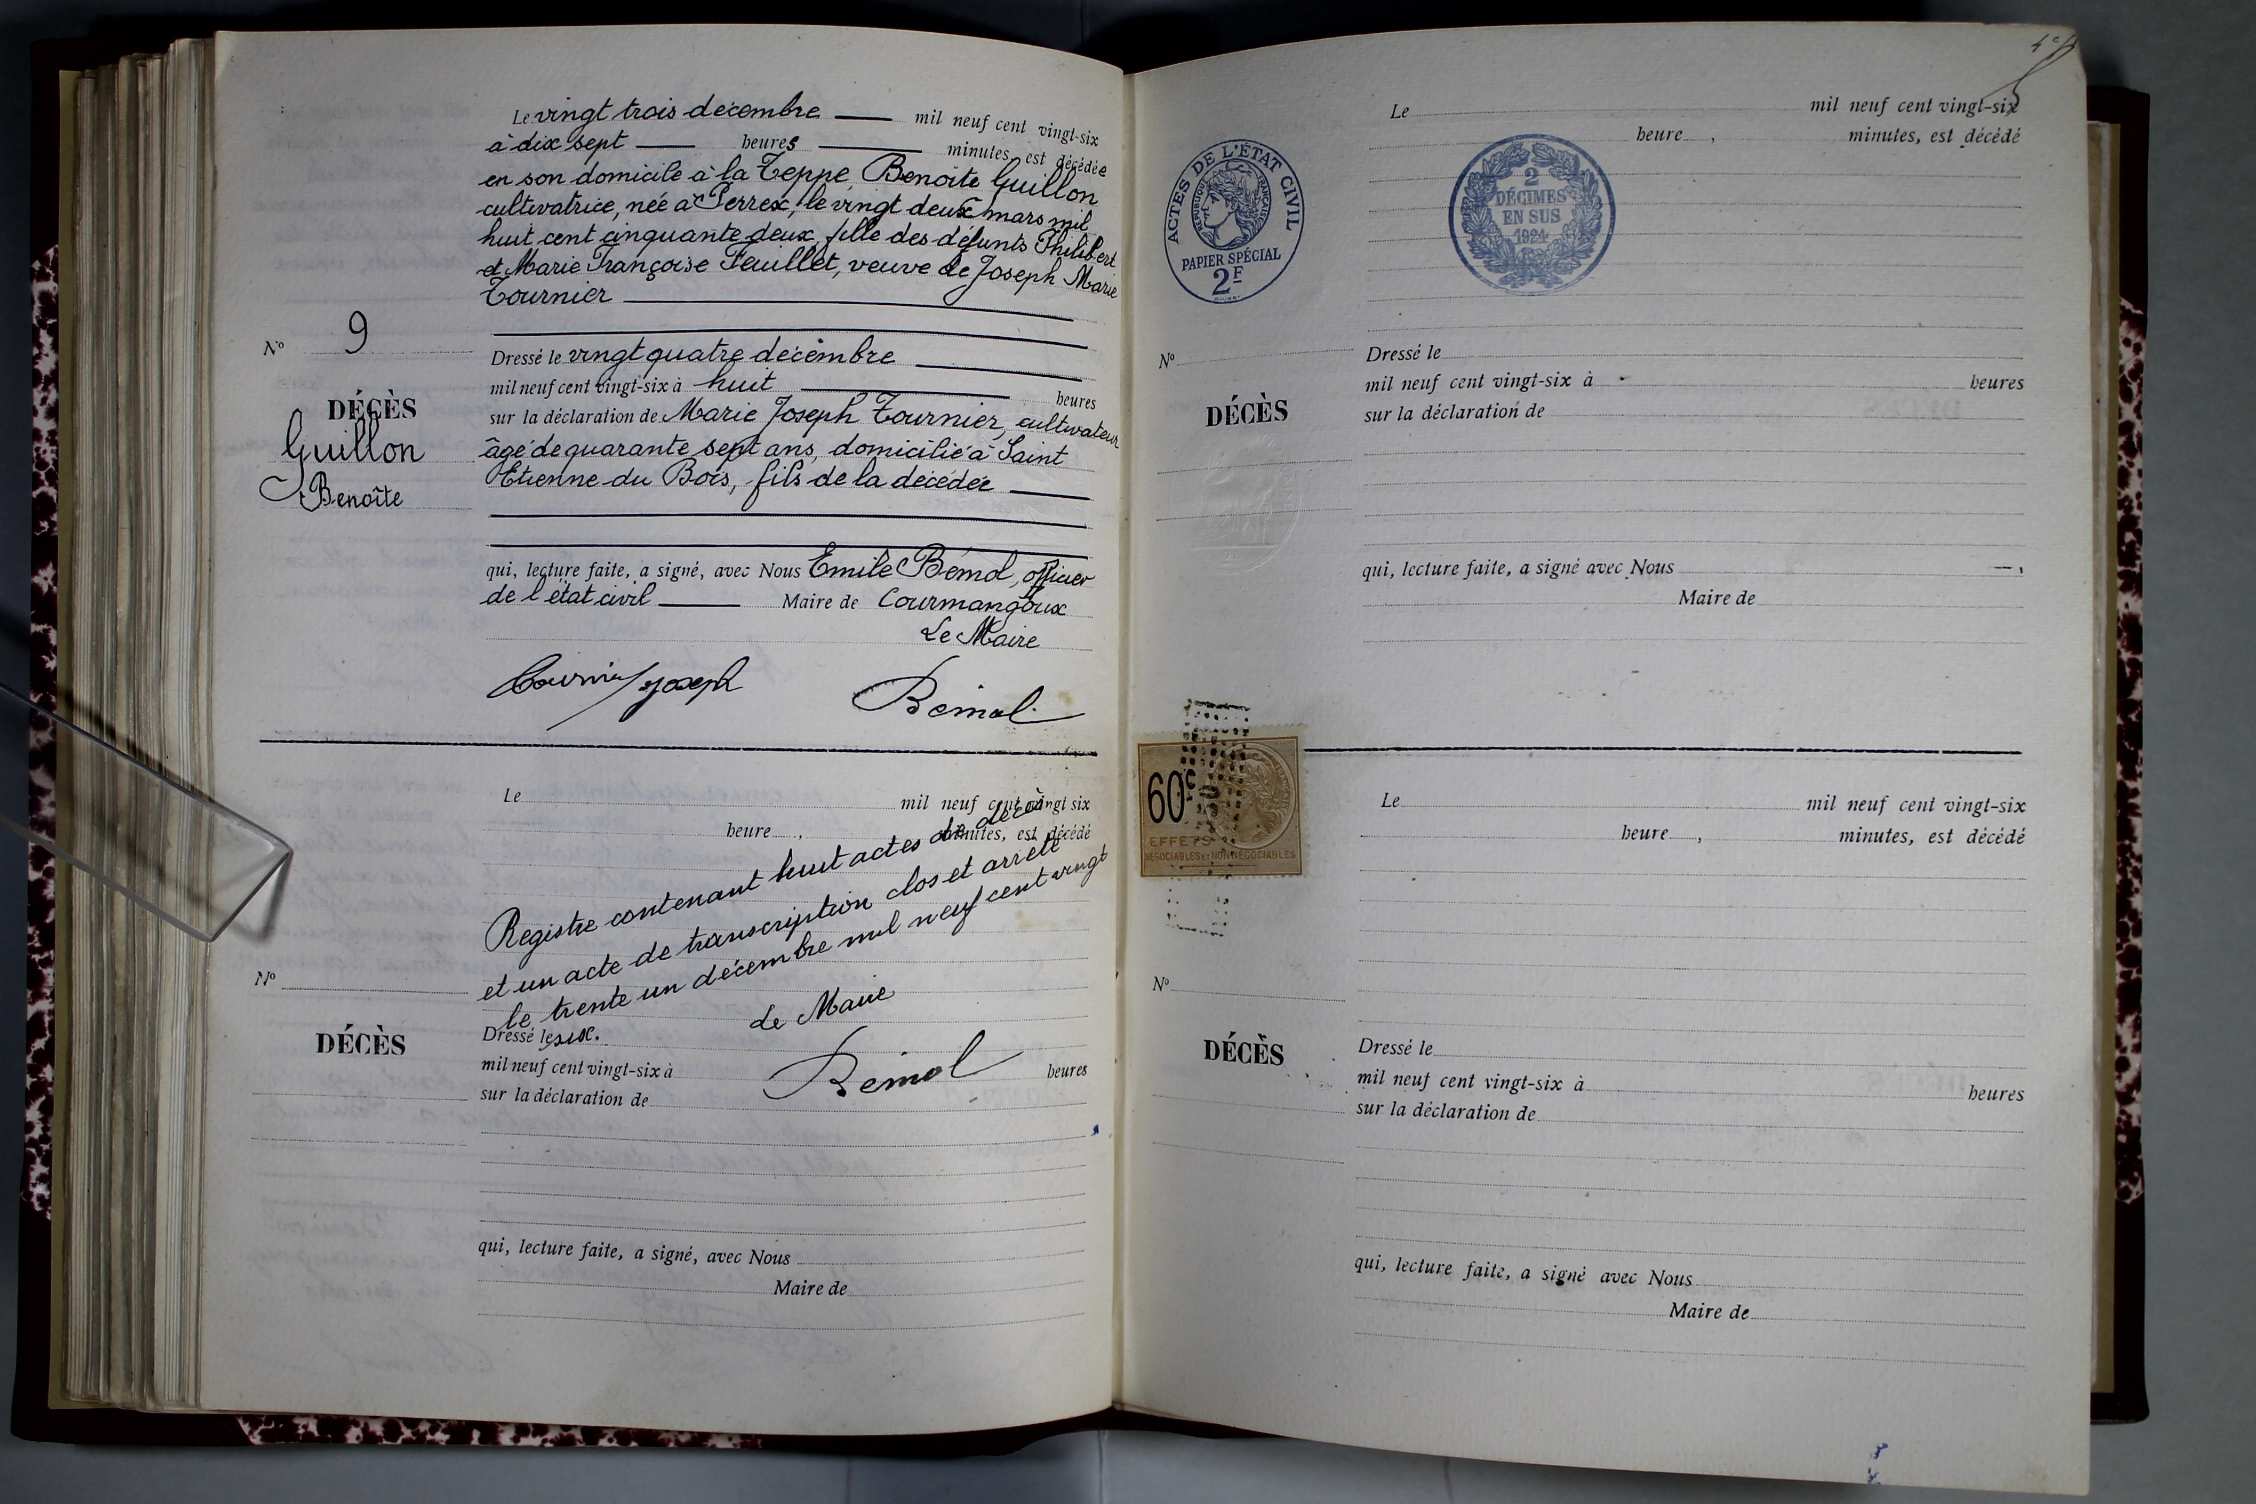 Le vingt trois décembre mil neuf cent vingt-six
à dix sept heures minutes, est décédée
en son domicile à la Teppe, Benoite Guillon
cultivatrice, née à Perrex, le vingt deux mars mil
huit cent cinquante deux, fille des défunts Philibert
et Marie Françoise Feuillet, veuve de Joseph Marie
Tournier
No 9
DÉCÈS
Guillon
Benoîte
Dressé le vingt quatre décembre
mil neuf cent vingt-six à huit heures
sur la déclaration de Marie Joseph Tournier, cultivateur
âgé de quarante sept ans, domicilié à Saint
Etienne du Bois, fils de la décédée
qui, lecture faite, a signé, avec Nous Emile Bémol, officier
de l'état civil Maire de Courmangoux
Le Maire
Tournier Joseph Bémol
Le mil neuf cent vingt six
heure , minutes, est décédé
Registre contenant huit actes de décès
et un acte de transcription clos et arrêté
le trente un décembre mil neuf cent vingt
six.
Le Maire
Bémol
No
DÉCÈS
Dressé le
mil neuf cent vingt-six à heures
sur la déclaration de
qui, lecture faite, a signé, avec Nous
Maire de
Le mil neuf cent vingt-six
heure , minutes, est décédé
ACTES DE L'ÉTAT CIVIL
RÉPUBLIQUE FRANÇAISE
PAPIER SPÉCIAL
2F
2
DÉCIMES
EN SUS
1924
No
DÉCÈS
Dressé le
mil neuf cent vingt-six à heures
sur la déclaration de
qui, lecture faite, a signé avec Nous
Maire de
60c
EFFETS
NÉGOCIABLES ET NON NÉGOCIABLES
Le mil neuf cent vingt-six
heure , minutes, est décédé
No
DÉCÈS
Dressé le
mil neuf cent vingt-six à heures
sur la déclaration de
qui, lecture faite, a signé avec Nous
Maire de